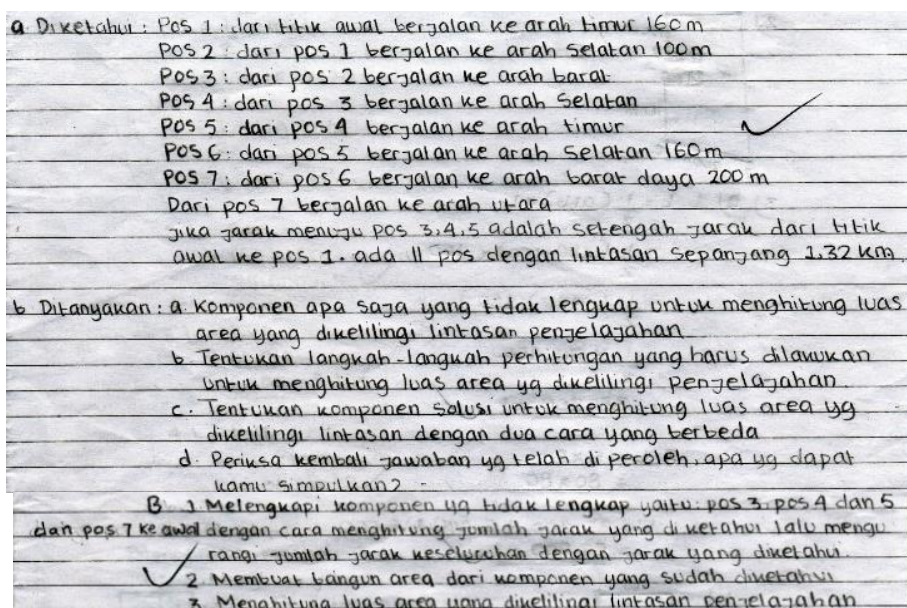 a Diketahui : Pos 1 : dari titik awal berjalan ke arah timur 160 m
POS 2 : dari pos 1 berjalan ke arah selatan 100 m
POS 3 : dari pos 2 berjalan ke arah barat
POS 4 : dari pos 3 berjalan ke arah selatan
POS 5 : dari pos 4 berjalan ke arah timur
POS 6 : dari pos 5 berjalan ke arah selatan 160 m
POS 7 : dari pos 6 berjalan ke arah barat daya 200 m
Dari pos 7 berjalan ke arah utara
jika jarak menuju pos 3.4.5 adalah setengah jarak dari titik
awal ke pos 1. ada 11 pos dengan lintasan sepanjang 1.32 km
b Ditanyakan : a. Komponen apa saja yang tidak lengkap untuk menghitung luas
area yang dikelilingi lintasan penjelajahan
b. Tentukan langkah-langkah perhitungan yang harus dilakukan
untuk menghitung luas area yg dikelilingi penjelajahan.
c. Tentukan komponen solusi untuk menghitung luas area yg
dikelilingi lintasan dengan dua cara yang berbeda
d. Periksa kembali jawaban yg telah di peroleh, apa yg dapat
kamu simpulkan?
B 1 Melengkapi komponen yg tidak lengkap yaitu : pos 3, pos 4 dan 5
dan pos 7 ke awal dengan cara menghitung jumlah jarak yang di ketahui lalu mengu
rangi jumlah jarak keseluruhan dengan jarak yang diketahui.
2 Membuat bangun area dari komponen yang sudah diketahui
3 Menghitung luas area yang dikelilingi lintasan penjelajahan